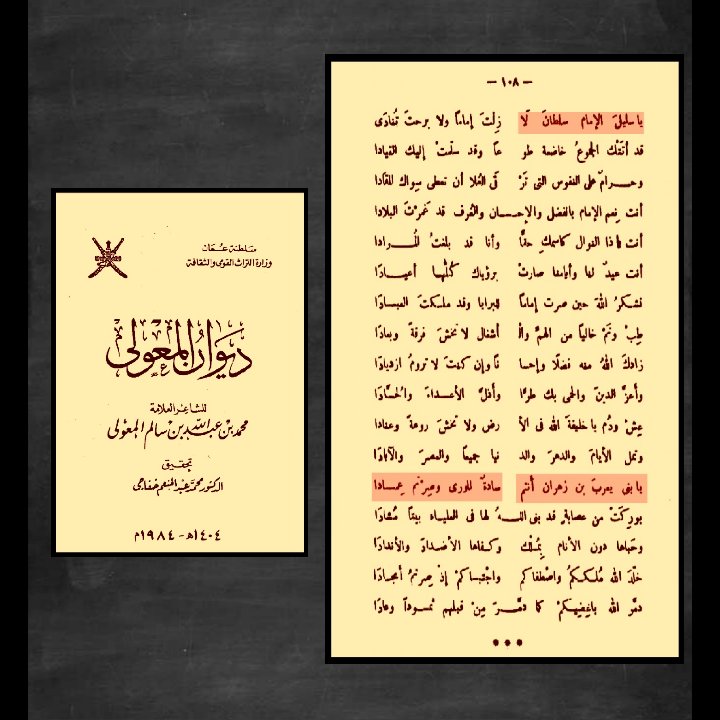 سلطنة عُمان
وزارة التراث القومي والثقافة
ديوان المعولى
للشاعر العلامة
محمد بن عبد الله بن سالم المعولى
تحقيق
الدكتور محمد عبد المنعم خفاجى
١٤٠٤هـ - ١٩٨٤م
— ١٠٨ —
يا سليلَ الإمام سلطانَ لَا زِلْتَ إمامًا ولا برحتَ تُفَادَى
قد أتَتْك الجموعُ خاضعة طو عًا وقد سلَّمتْ إليك القيادا
وحرامٌ على النفوس التى تَرْ قَى العُلا أن تعطى سِواك المقادا
أنت نِعم الإمام بالفضل والإحسان والعُرف قد عَمَرْتَ البلادا
أنت ذا الفوال كاسمكِ حقًّا وأنا قد بلغتُ المُرادا
أنت عيدٌ لها وأيامها صارتْ برؤياك كُلُّها أعيادَا
فشكرُ اللهَ حين صرت إمامًا للبرايا وقد ملكتَ العبادَا
طِبْ ونَمْ خاليًا من الهمِّ والْ أشغال لا تخشَ فرقة وبعادَا
زادكَ اللهُ منه فضلًا وإحسا نًا وإن كنتَ لا ترومُ ازديادَا
وأعزَّ الدينَ والحمى بك طرًّا وأذلَّ الأعداءَ والحُسَّادَا
عِشْ ودُم يا خليفةَ الله فى الأ رض ولا تخشَ روعةً وعنادا
وتملَّ الأيامَ والدهرَ والد نيا جميعًا والعصرَ والآبادَا
يا بنى يعربَ بن زهران أنتم سادةٌ للورى وصِرْتم عِمادَا
بورِكَتْ من عصابةٍ قد بنى اللهُ لها فى العلياء بيتًا مُشادَا
وحَباها دون الأنام بِمُلْك وكفاها الأضدادَ والأندادَا
خلّدَ الله مُلككُمُ واصْطفاكم واجْتباكمْ إذْ صِرتمُ أمجادَا
دمَّر الله باغِضِيكمْ كما دمَّرَ مِنْ قبلهم ثموداً وعادَا